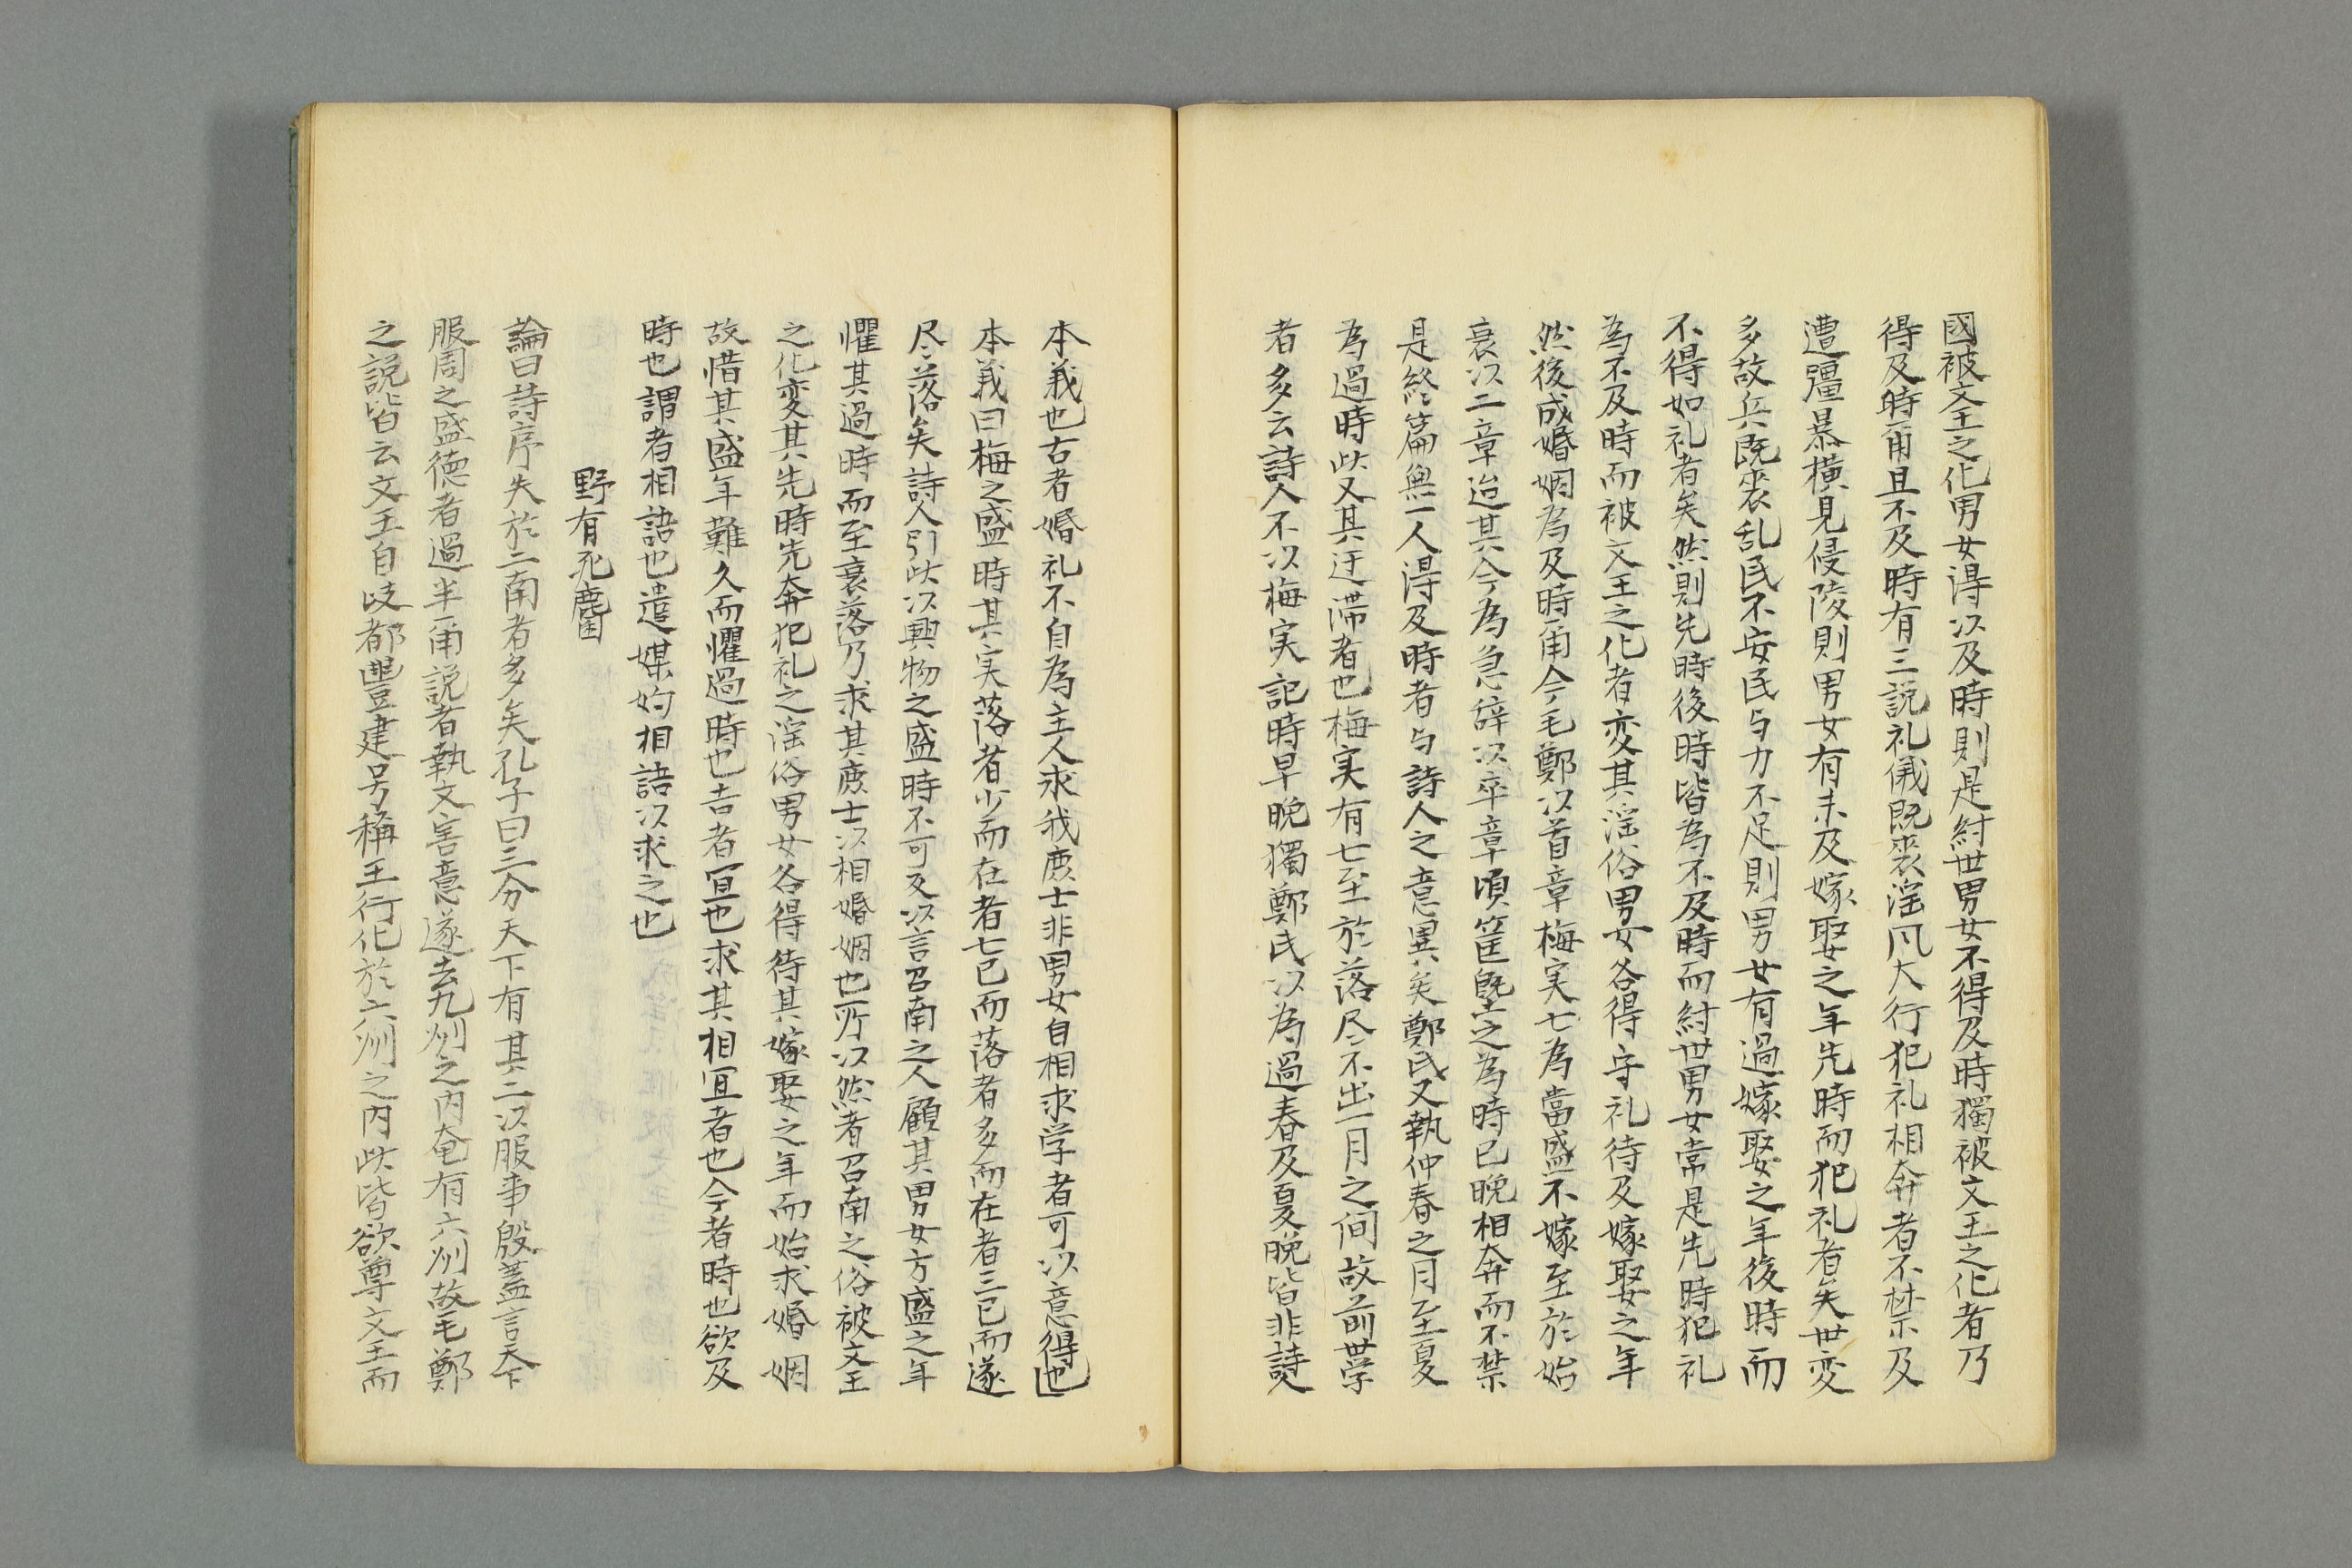 國被文王之化男女得以及時則是紂世男女不得及時獨被文王之化者乃
得及時甭且不及時有三説礼儀既衰淫風大行犯礼相奔者不禁及
遭彊暴横見侵陵則男女有未及嫁娶之年先時而犯礼者矣世変
多故兵既喪乱民不安民与力不足則男女有過嫁娶之年後時而
不得如礼者矣然則先時後時皆為不及時而紂世男女常是先時犯礼
為不及時而被文王之化者変其淫俗男女各得守礼待及嫁娶之年
然後成婚姻為及時甭今毛鄭以首章梅実七為當盛不嫁至於始
衰以二章迨其今為急辞以卒章頃筐塈之為時已晩相奔而不禁
是終篇無一人得及時者与詩人之意異矣鄭氏又執仲春之月至夏
為過時此又其迂滞者也梅実有七至於落尽不出一月之间故前世学
者多云詩人不以梅実記時早晩獨鄭氏以為過春及夏晩皆非詩
本義也古者婚礼不自為主人求我庶士非男女自相求学者可以意得也
本義曰梅之盛時其実落者少而在者七已而落者多而在者三已而遂
尽落矣詩人引此以興物之盛時不可久以言召南之人顧其男女方盛之年
懼其過時而至衰落乃求其庶士以相婚姻也所以然者召南之俗被文王
之化変其先時先奔犯礼之淫俗男女各得待其嫁娶之年而始求婚姻
故惜其盛年難久而懼過時也吉者冝也求其相冝者也今者時也欲及
時也謂者相語也遣媒妁相語以求之也
野有死麕
論曰詩序失於二南者多矣孔子曰三分天下有其二以服事殷蓋言天下
服周之盛徳者過半甭説者執文害意遂去九州之内奄有六州故毛鄭
之説皆云文王自岐都豐建号稱王行化於六州之内此皆欲尊文王而